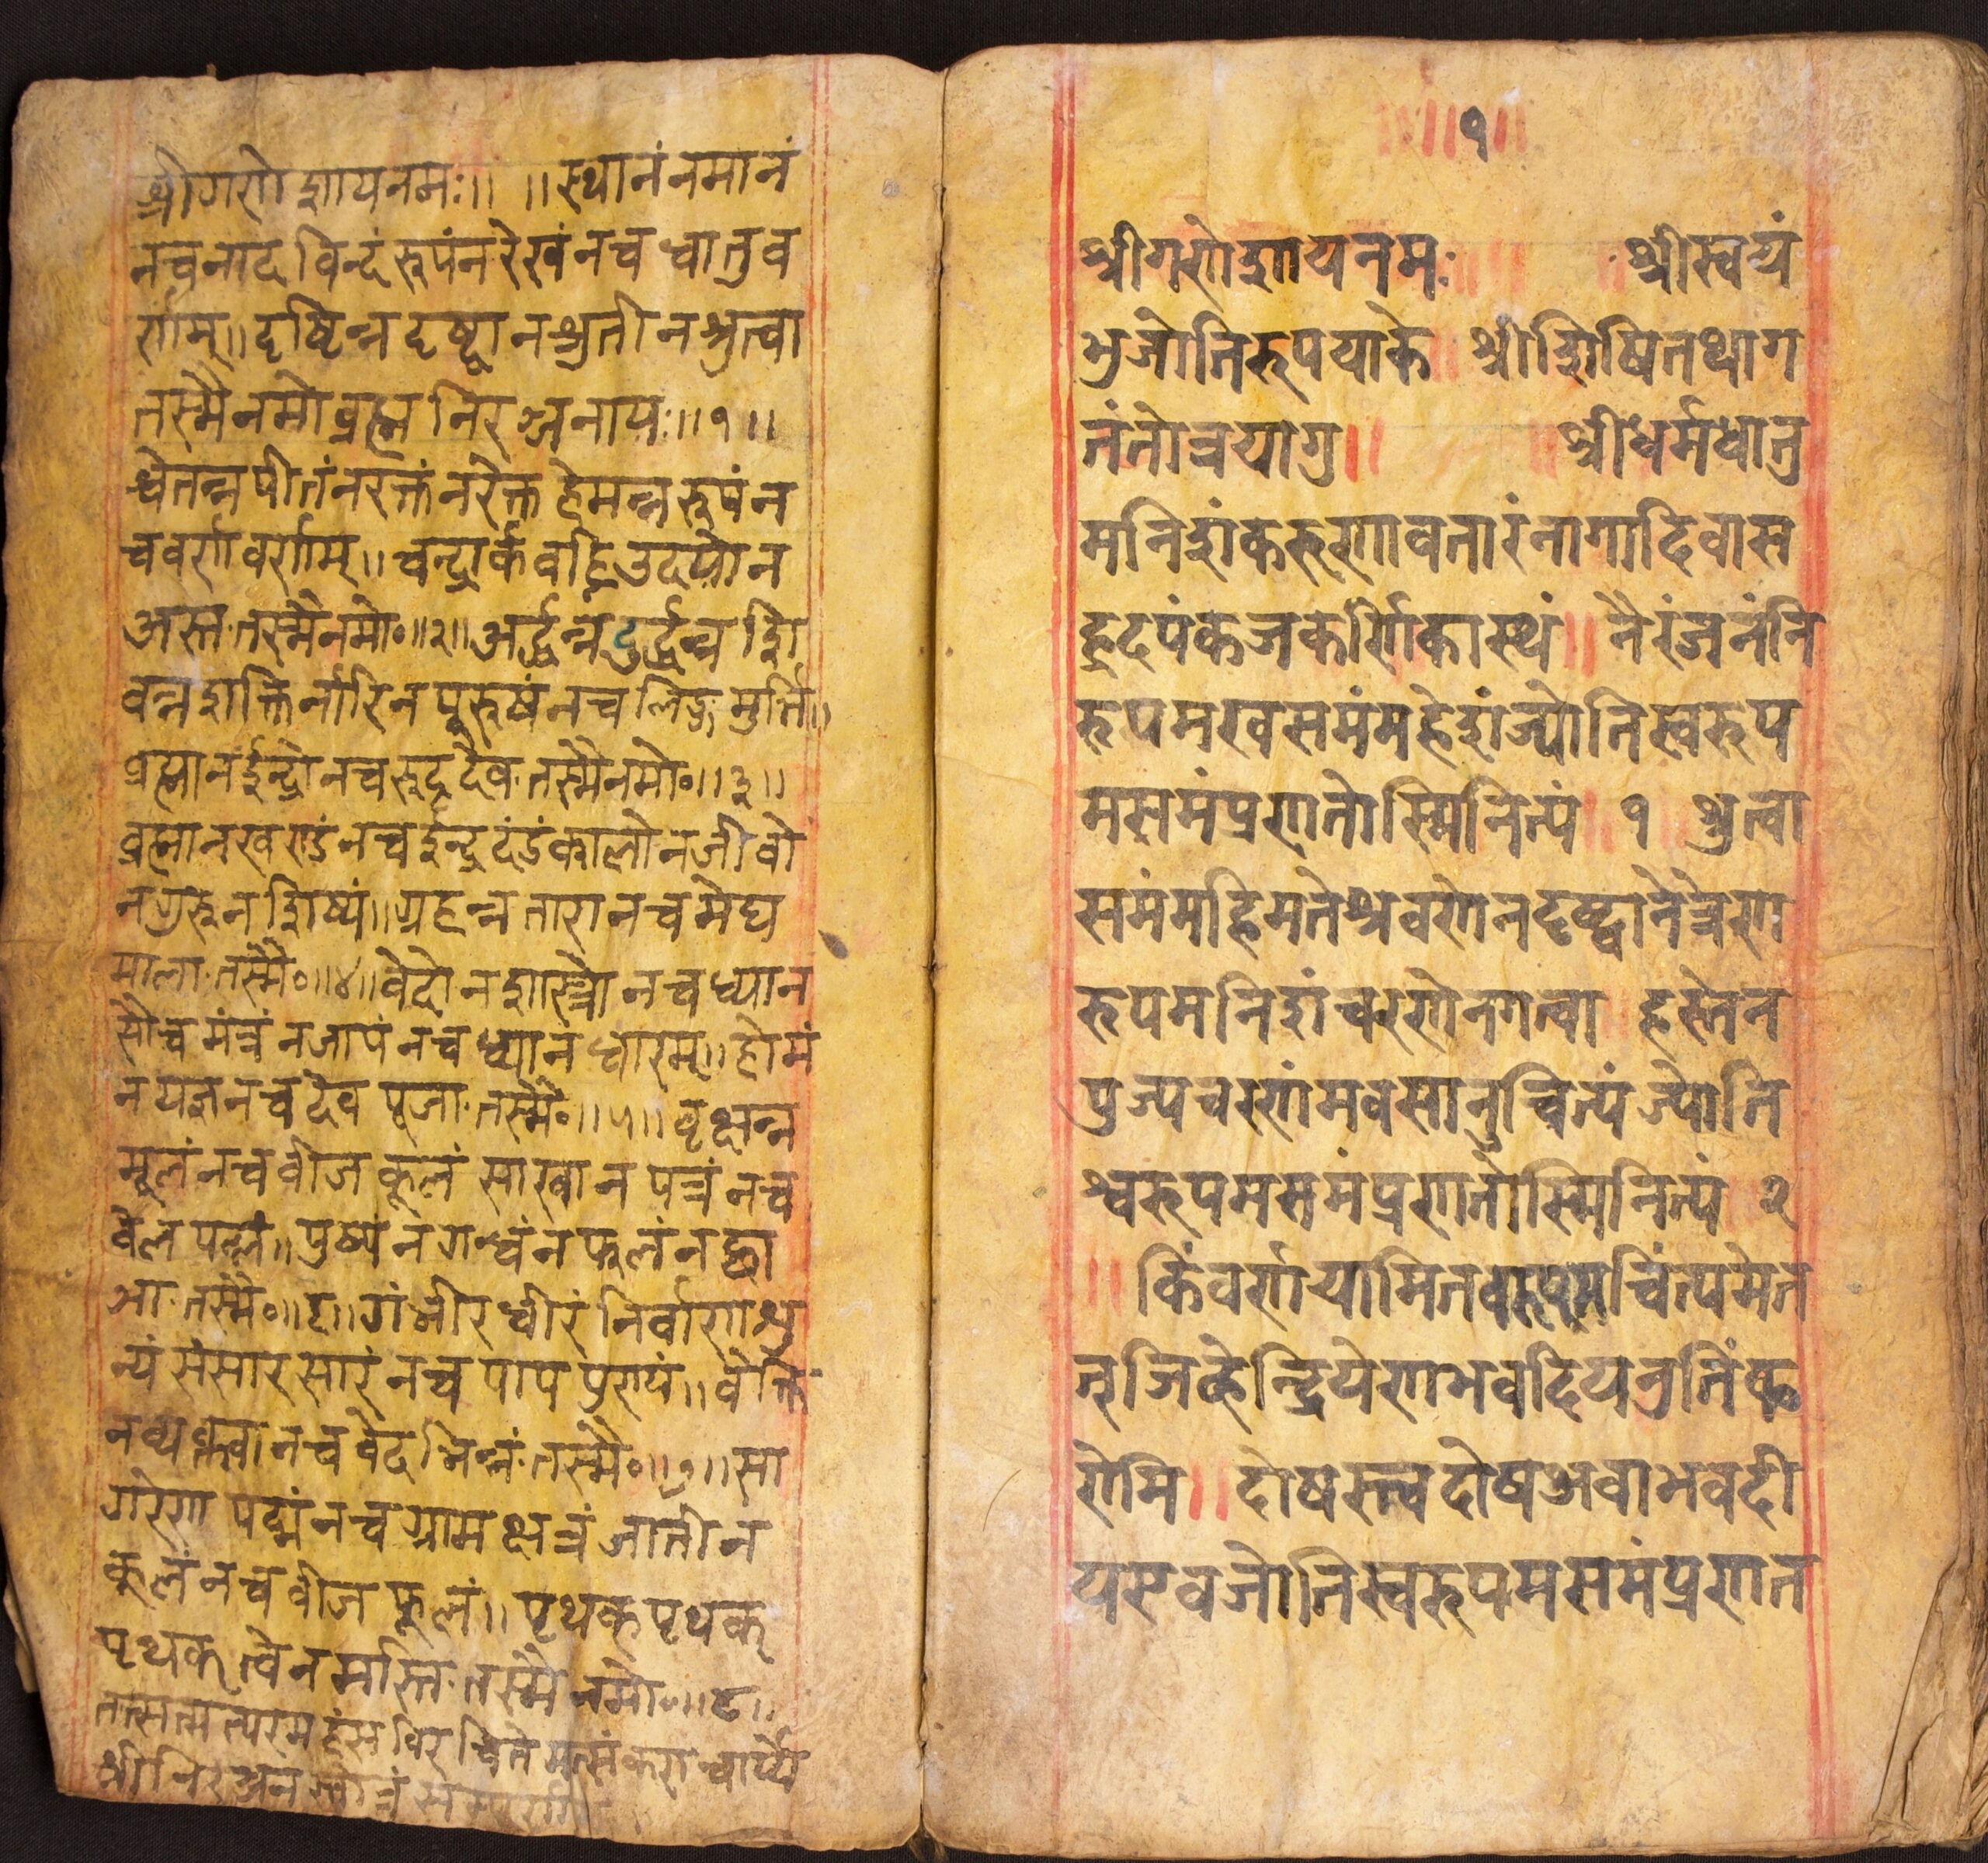 श्रीगणेशायनमः॥ ॥स्थानंनमानं
नचनादविन्दंरुपंनरेखंनचधातुव
र्णाम्॥दृष्टिन्नदृष्टानश्रुतीनश्रुत्वा
तस्मैनमोव्रह्मनिरञ्जनायः॥१॥
श्वेतन्नपीतंनरक्तंनरेक्तहेमन्नरुपंन
चवर्णावर्णाम्॥चन्द्रार्कवह्निउदयोन
अस्त·तस्मैनमो०॥२॥अर्द्धन्नदुर्द्धन्नशि
वन्नशक्तिर्नारिनपुरुषंनचलिङ्गमुर्त्ति॥
व्रह्मानईन्द्रोनचरुद्रदेव·तस्मैनमो०॥३॥
व्रह्मानखण्डंनचईन्द्रदंडंकालोनजीवो
नगुरुनशिष्यं॥ग्रहन्नतारानचमेघ
माला·तस्मै०॥४॥वेदोनशास्त्रोनचध्यान
सौचमंत्रंनजापंनचध्यानधारम्॥होमं
नयज्ञनचदेवपूजा·तस्मै०॥५॥वृक्षन्न
मूलंनचवीजकूलंसाखानपत्रंनच
वेलपल्लं॥पुष्पंनगन्धंनफलंनछा
आ·तस्मै०॥६॥गंभीरधीरंनिर्वाणश्रु
न्यंसंसारसारंनचपापपुण्यं॥वेक्ति
नव्यक्तवानचवेदभिन्नं·तस्मै०॥७॥सा
गरेणपद्मंनचग्रामक्षत्रंजातीन
कूलंनचवीजफूलं॥पृथक्पृथक्
पृथक्त्वेनमस्ति·तस्मैनमो०॥८॥
परमहंसविरचिते
श्रीनिरञ्जन
१
श्रीगणेशायनमः श्रीस्वयं
भुजोतिरुपयाके श्रीशिषितथाग
तंतोत्रयागु॥ श्रीधर्मधातु
मनिशंकरुणावतारंनागादिवास
हृदपंकजकर्णिकास्थं॥नैरंजनंनि
रुपमखसमंमहेशंज्योतिस्वरुप
मसमंप्रणतोस्मिनित्यं १ श्रुत्वा
समंमहिमतेश्रवणेनदृष्ट्वानेत्रेण
रुपमनिशंचरणेनगत्वा हस्तेन
पुज्यचरणंमवसानुचिन्त्यंज्योति
श्वरुपमसमंप्रणतोस्मिनित्यं २
॥किंवर्णयामितव चिंत्यमेत
त्जिव्हेन्द्रियेणभवदियनुतिंक
रोमि॥दोषस्त्वदोषअवाभवदी
यएवजोतिस्वरुपमसमंप्रणत